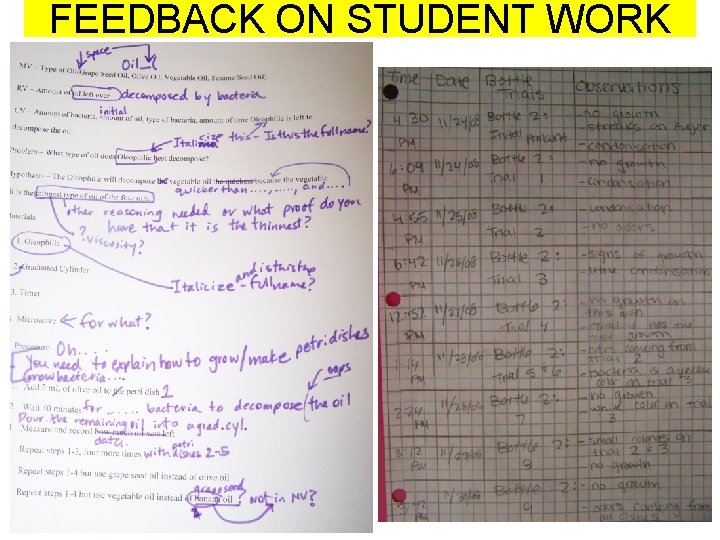 FEEDBACK ON STUDENT WORK
space
Oil -(
MV – Type of Oil(Grape Seed Oil, Olive Oil, Vegetable Oil, Sesame Seed Oil)
RV – Amount of oil left over decomposed by bacteria
initial
CV – Amount of bacteria, amount of oil, type of bacteria, amount of time Oleophilic is left to
decompose the oil
Italicize this - Is this the full name?
Problem – What type of oil does Oleophilic best decompose?
Hypothesis – The Oleophilic will decompose the vegetable oil the quickest because the vegetable
quicker than ...., ....., and ....
oil is the thinnest type of oil of the four oils.
other reasoning needed or what proof do you
have that it is the thinnest?
Materials
? viscosity?
1. Oleophilic
and is this the
Italicize - full name?
2. Graduated Cylinder
3. Timer
Microwave for what?
Procedure Oh....
petri dishes
You need to explain how to grow/make
grow bacteria....
oops
Add 2 mL of olive oil to the petri dish 1
2. Wait 30 minutes for ...... bacteria to decompose the oil
Pour the remaining oil into a grad. cyl.
Measure and record how much oil was left
data
petri
Repeat steps 1-3, four more times with dishes 2-5
Repeat steps 1-4 but use grape seed oil instead of olive oil
grapeseed
Repeat steps 1-4 but use vegetable oil instead of banana oil ? Not in MV?
Time Date Bottle Trials Observations
4:30 PM 11/24/08 Bottle 2: Initial Amount - no growth - streaks on Auger - condensation
6:09 PM 11/24/08 Bottle 2: Trial 1 - no growth - condensation
4:55 PM 11/25/08 Bottle 2: Trial 2 - condensation - no odors
6:42 PM 11/26/08 Bottle 2: Trial 3 - signs of growth - little condensation
12:52 PM 11/27/08 Bottle 2: Trial 4 - no growth on this dish - Trial 1 has the most growth
Bottle 2: Trial 5 - odors coming from Trial 2 - bacteria is a yellow color on trial 3
Bottle 2: - no growth color on Trial 3
Bottle 2: - small colonies on trial 2 & 3 - no growth
Bottle 2: - no growth - odors coming from all dishes